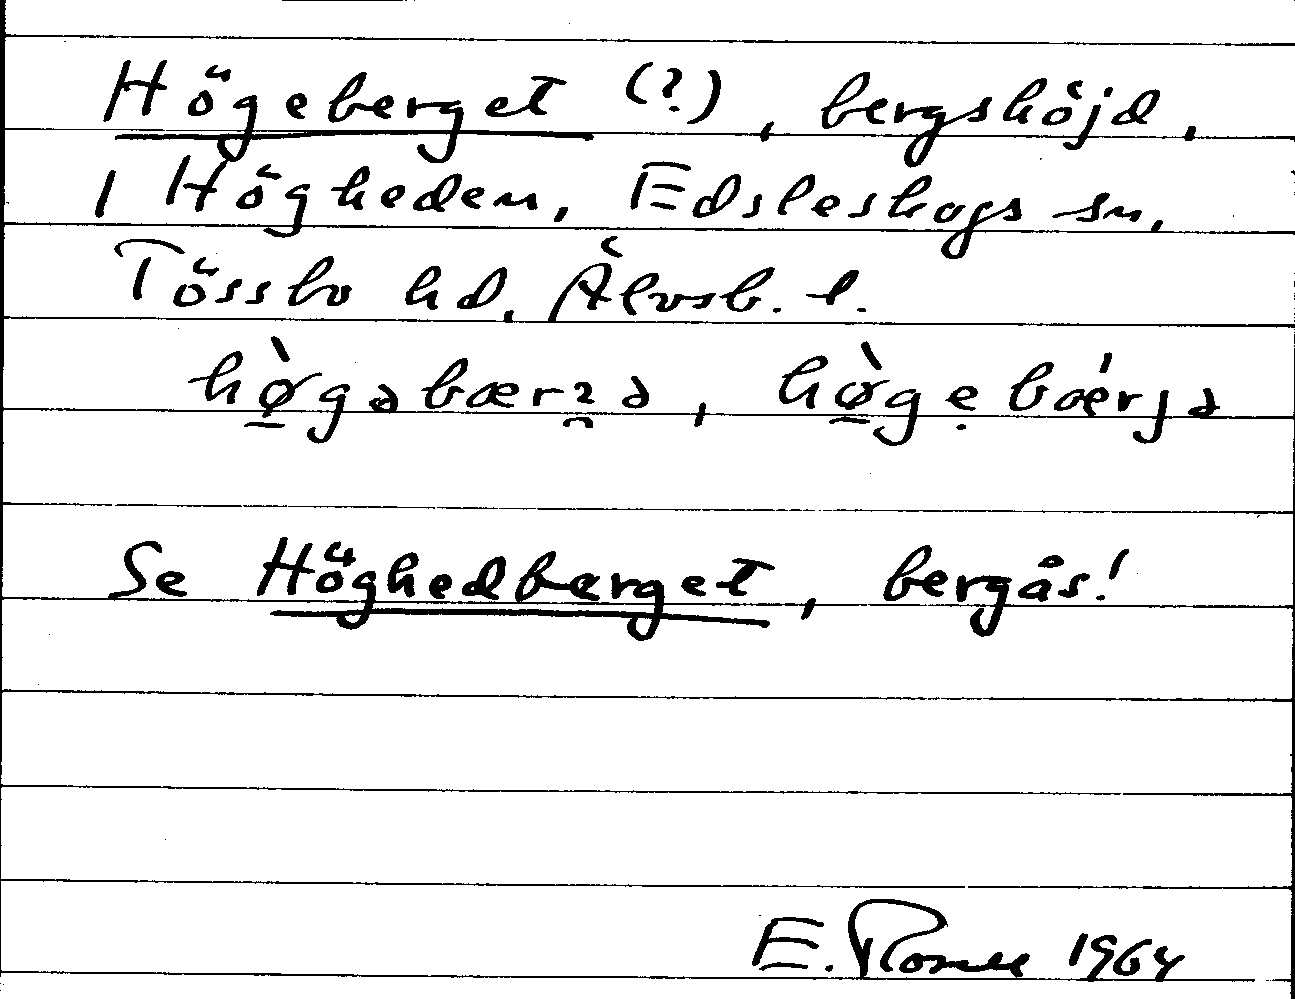 Högeberget (?), bergshöjd,
i Högheden, Edsleskogs sn,
Tössbo hd, Älvsb. l.
hø̀gəbærʒə, hø̀gẹbǽrjə
Se Höghedberget, bergås!
E. 1964